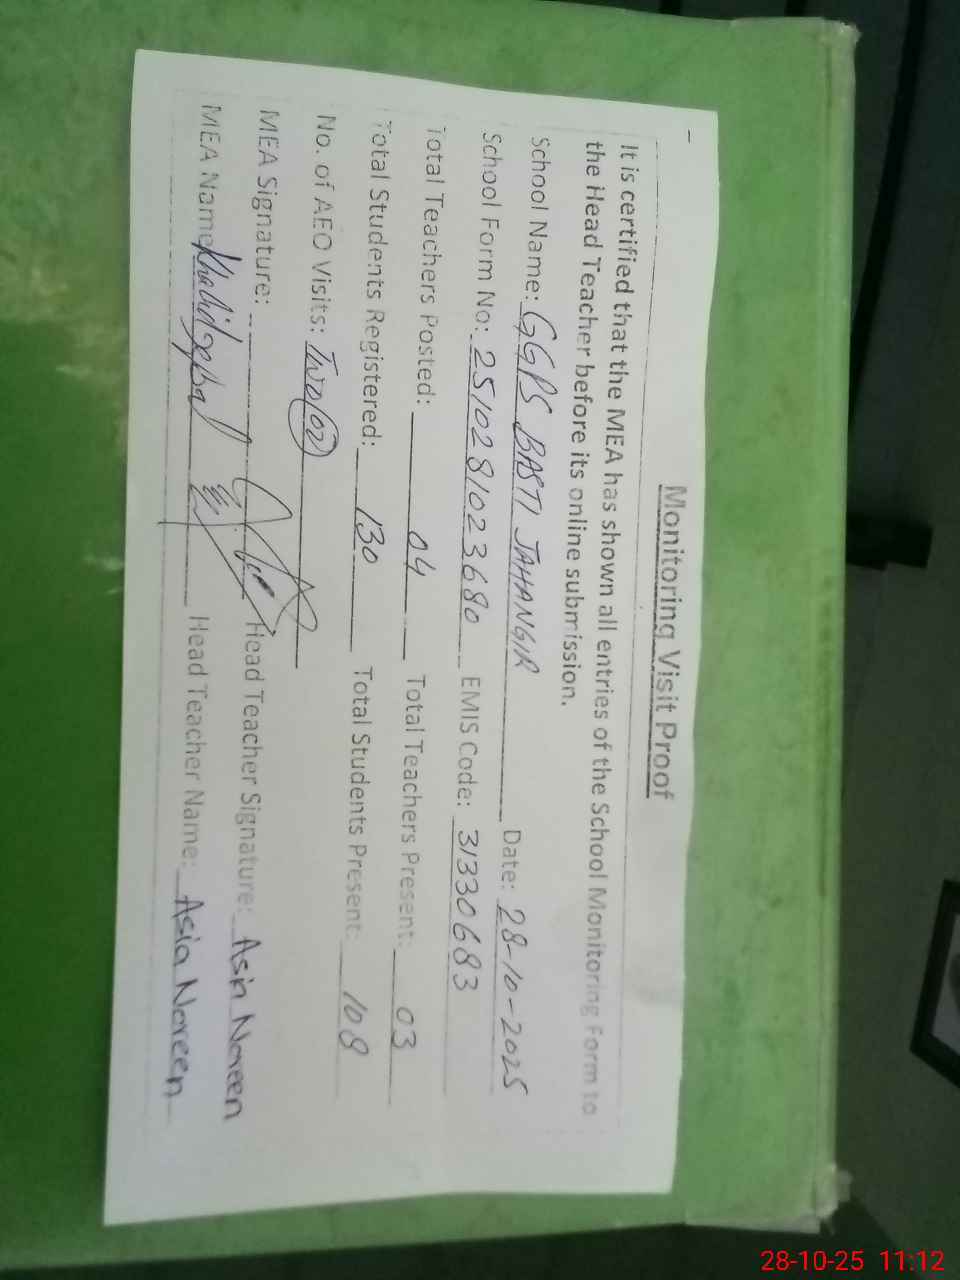 Monitoring Visit Proof
It is certified that the MEA has shown all entries of the School Monitoring Form to
the Head Teacher before its online submission.
School Name: GGPS BASTI JAHANGIR Date: 28-10-2025
School Form No: 2510281023680 EMIS Code: 31330683
Total Teachers Posted: 04 Total Teachers Present: 03
Total Students Registered: 130 Total Students Present: 108
No. of AEO Visits: Two (02)
MEA Signature: Head Teacher Signature: Asia Noreen
MEA Name: Khalid Iqbal Head Teacher Name: Asia Noreen
28-10-25 11:12